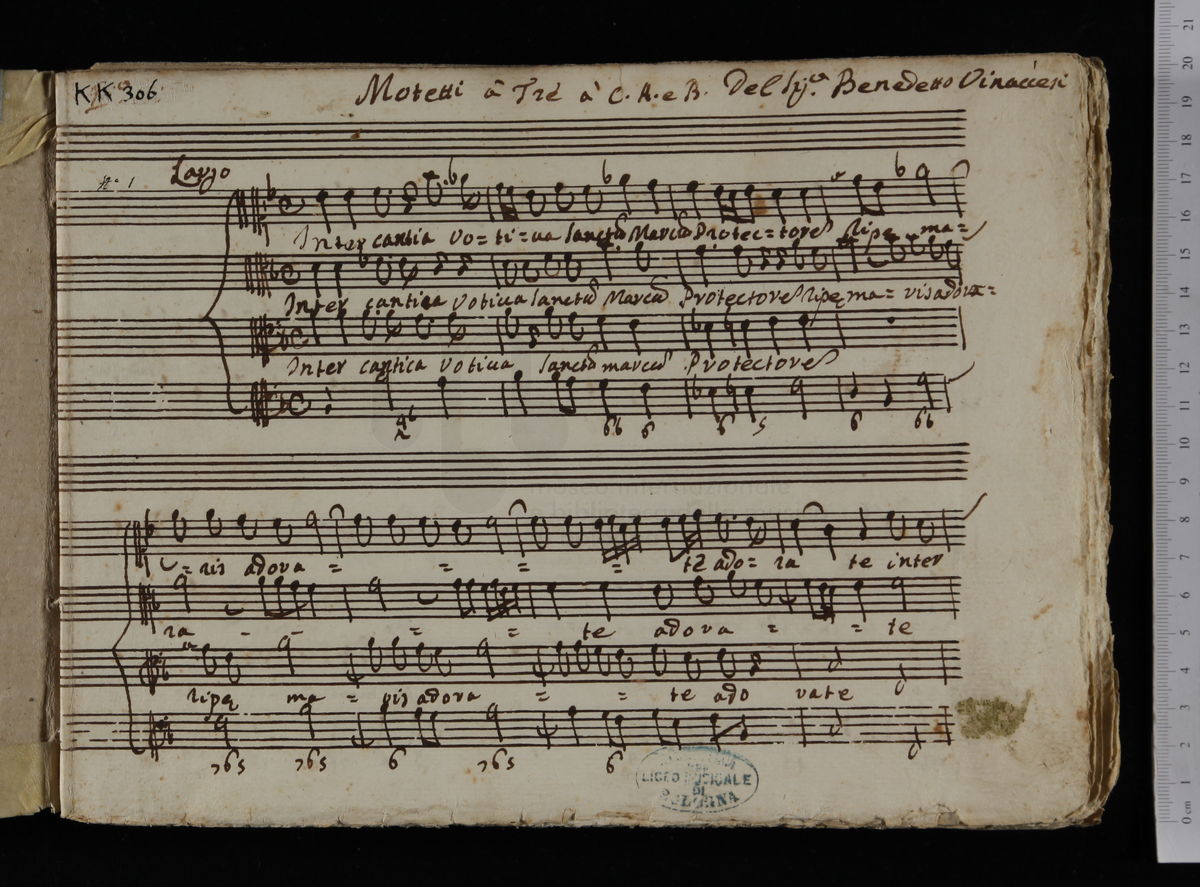 KK 306
Motetti à Trè à C. A. e B. Del Sig.r Benedetto Vinaccesi
N.o 1
Largo
Inter cantica vo=ti=va Sanctũ Marcũ Protec=torẽ ripę ma=
Inter cantica votiva Sanctũ Marcũ Protectorẽ ripę ma=ris adora=
Inter cantica votiva Sanctũ marcũ Protectorẽ
6 6b 6 6 5 6 6b
=ris adora = = = = te ado=ra te inter
ra - - = = te adora = = te
ripę ma = ris adora = = te ado rate
765 765 6 765 6
LICEO MUSICALE
DI
BOLOGNA